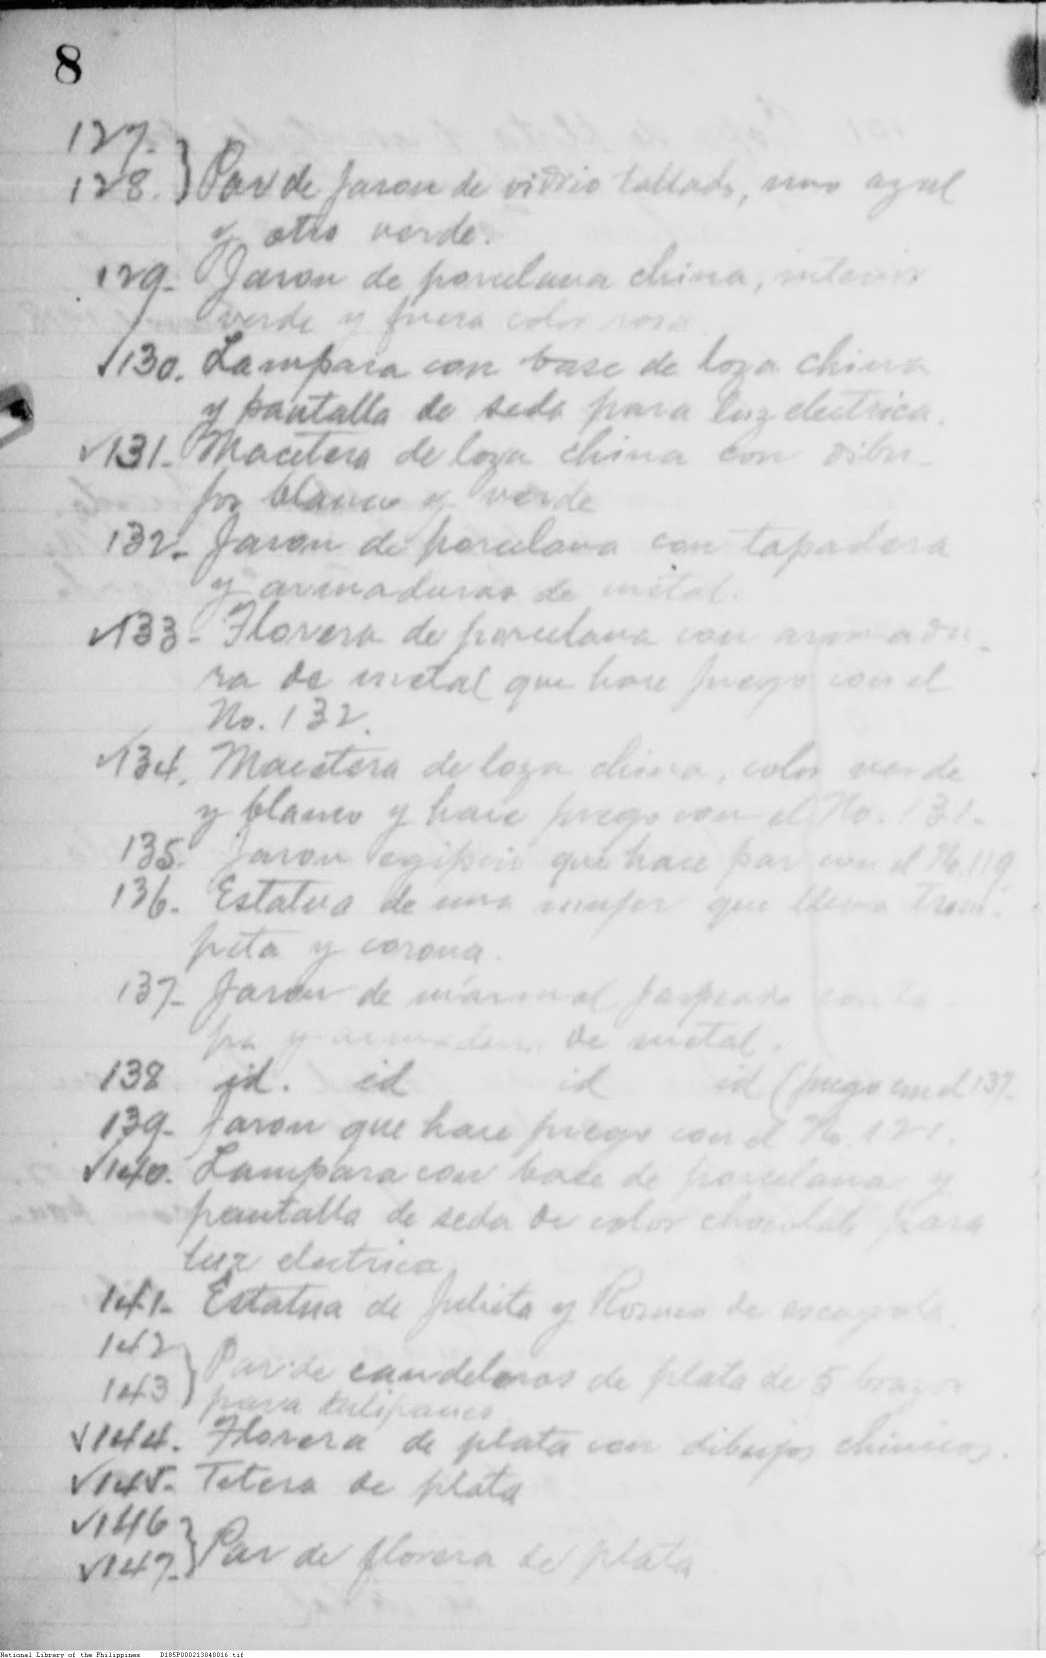 8
127.
128. } Par de Jaron de vidrio tallado, uno azul
y otro verde.
129. Jaron de porcelana china, interior
verde y fuera color rosa
√130. Lampara con base de loza china
y pantalla de seda para luz electrica.
√131. Macetera de loza china con dibu-
jos blanco y verde
132. Jaron de porcelana con tapadera
y armaduras de metal.
√133 - Florera de porcelana con armadu-
ra de metal que hace juego con el
No. 132.
√134. Macetera de loza china, color verde
y blanco y hace juego con el No. 131.
135. Jaron egipcio que hace par con el No. 119.
136. Estatua de una mujer que lleva trom-
peta y corona.
137- Jaron de marmol jaspeado con ta-
pa y de metal.
138 id. id id id (juego con el 137.
139- Jaron que hace juego con el No. 121.
√140. Lampara con base de porcelana y
pantalla de seda de color chocolate para
luz electrica
141- Estatua de Julieta y Romeo de escayola.
142
143 } Par de candeleros de plata de 5 brazos
para tulipanes
√144. Florera de plata con dibujos chinicos.
√145- Tetera de plata
√146
√147- } Par de florera de plata
National Library of the Philippines D185P000213040016.tif